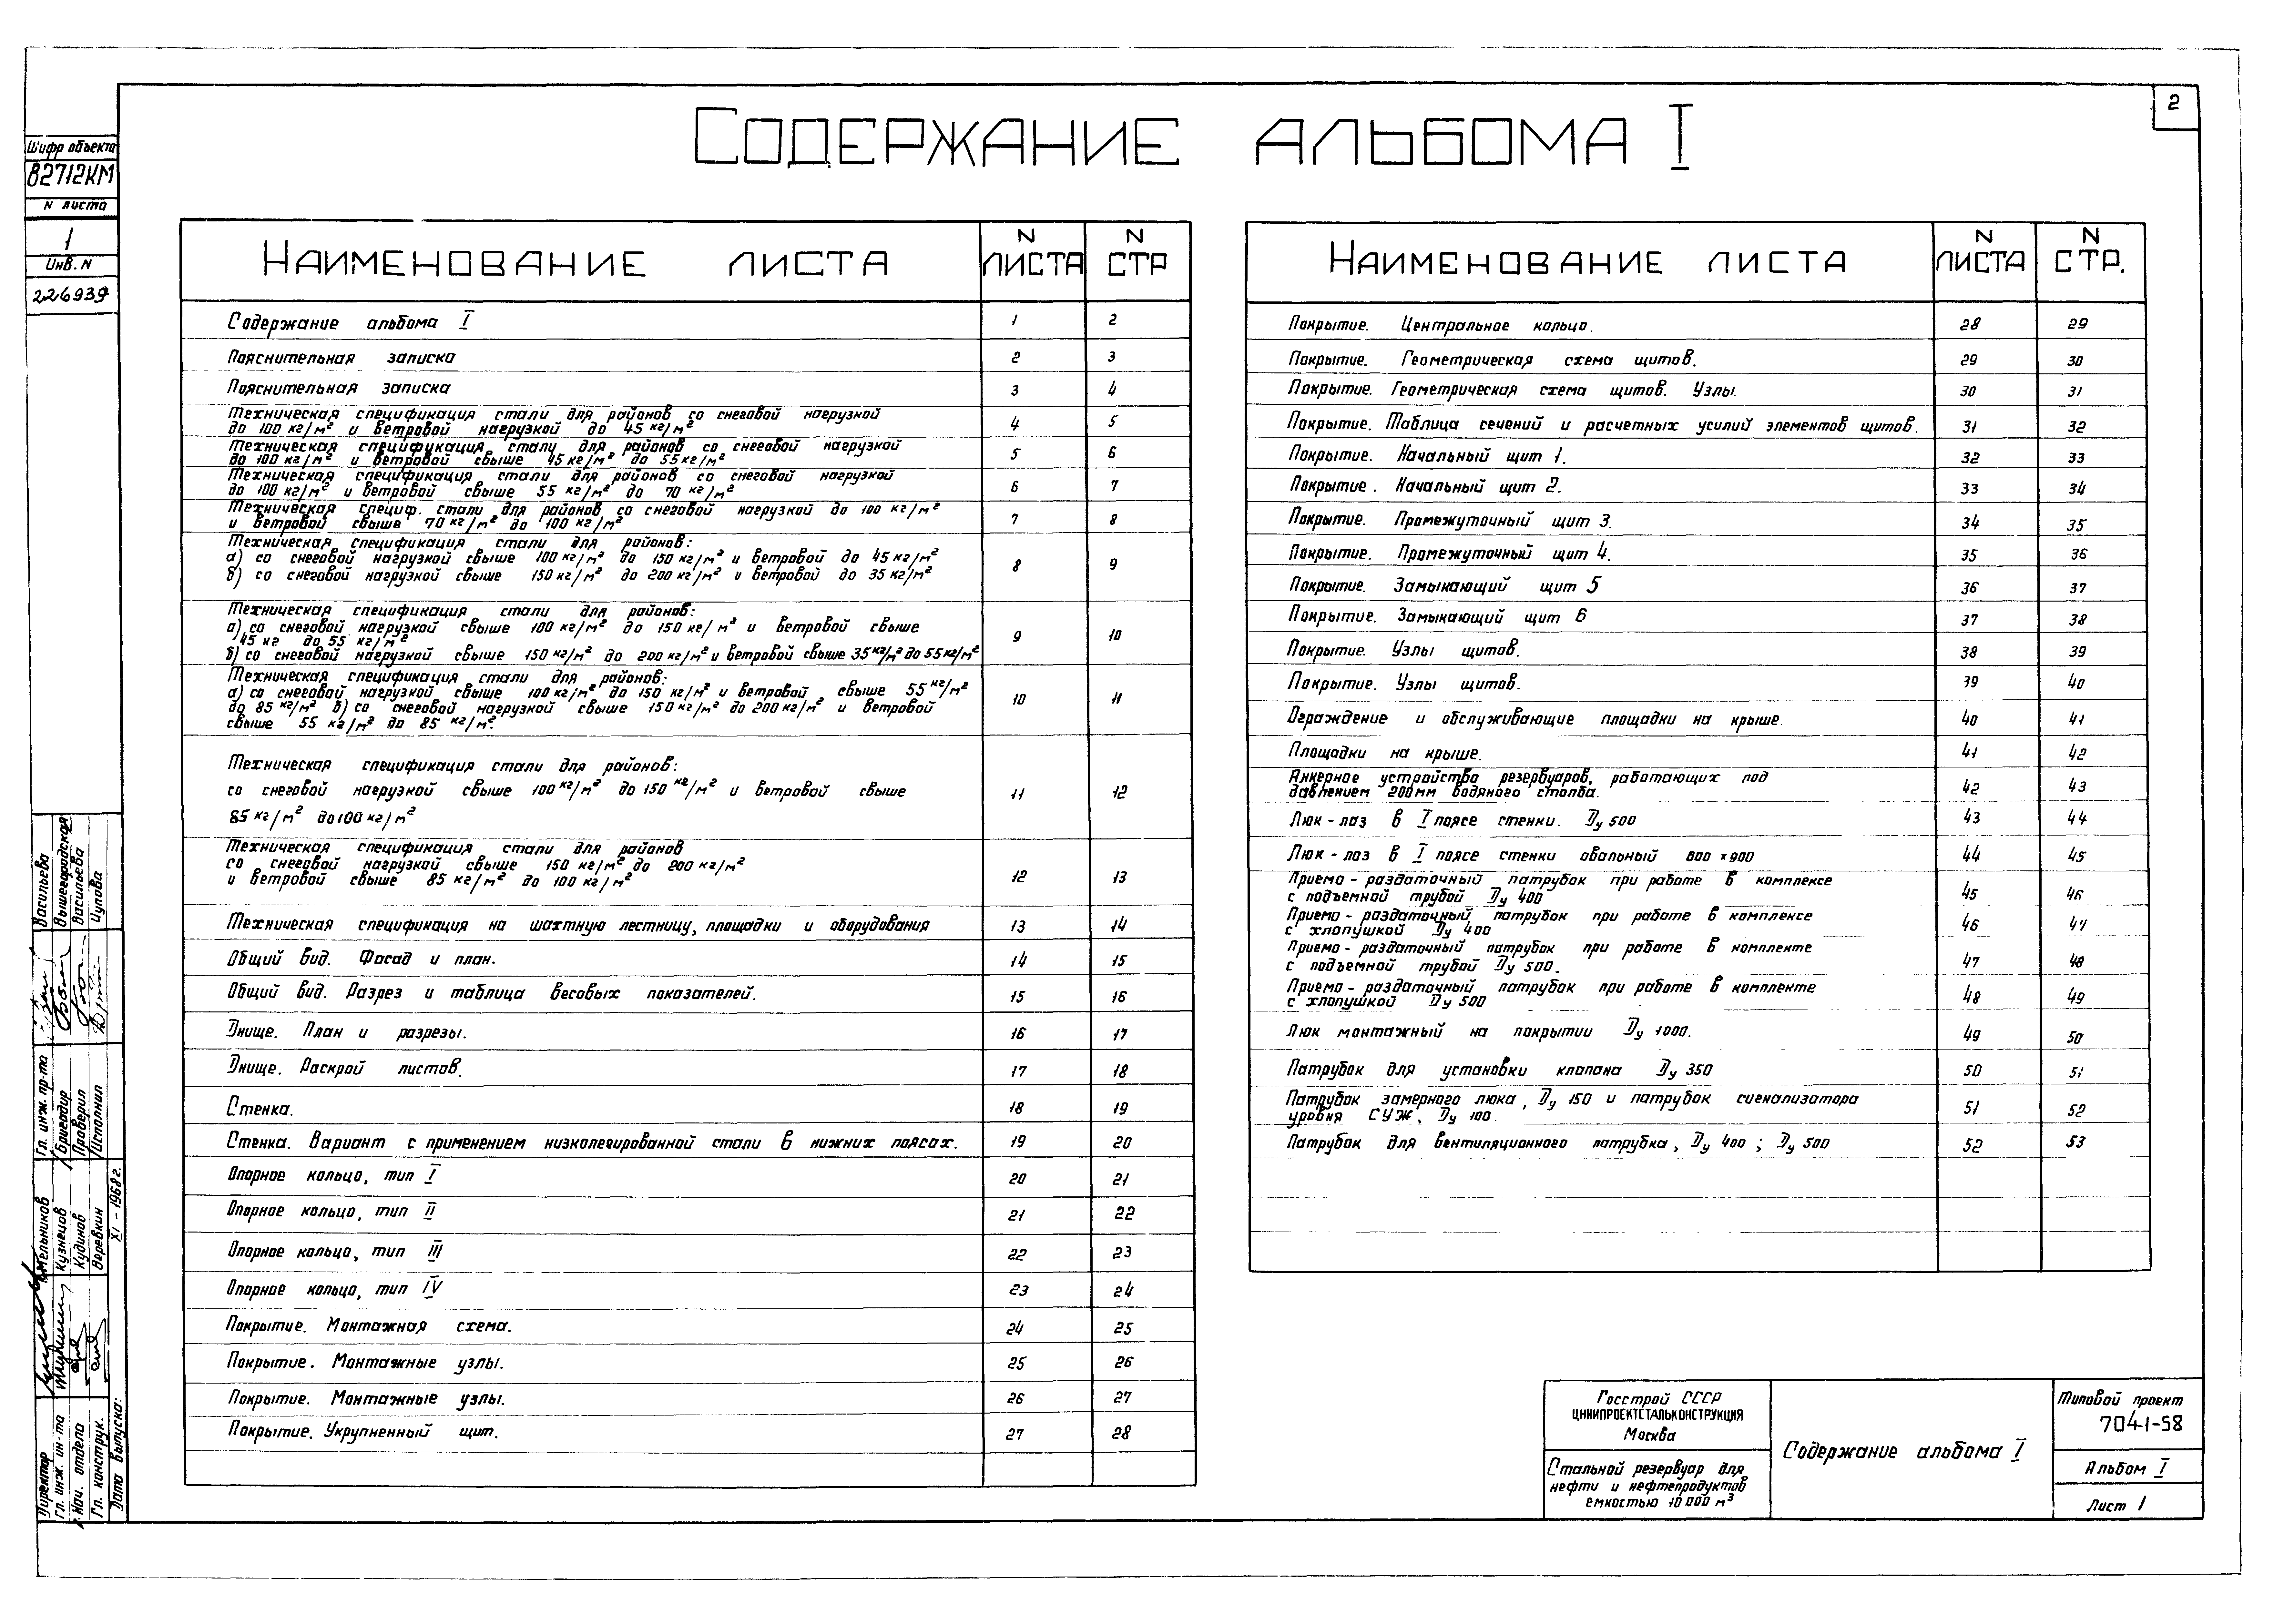 2
Содержание альбома I
Шифр объекта
В2712КМ
N листа
1
Инв. N
226939
Наименование листа N листа N стр
Содержание альбома I 1 2
Пояснительная записка 2 3
Пояснительная записка 3 4
Техническая спецификация стали для районов со снеговой нагрузкой
до 100 кг/м² и ветровой нагрузкой до 45 кг/м² 4 5
Техническая спецификация стали для районов со снеговой нагрузкой
до 100 кг/м² и ветровой свыше 45 кг/м² до 55 кг/м² 5 6
Техническая спецификация стали для районов со снеговой нагрузкой
до 100 кг/м² и ветровой свыше 55 кг/м² до 70 кг/м² 6 7
Техническая специф. стали для районов со снеговой нагрузкой до 100 кг/м²
и ветровой свыше 70 кг/м² до 100 кг/м² 7 8
Техническая спецификация стали для районов:
а) со снеговой нагрузкой свыше 100 кг/м² до 150 кг/м² и ветровой до 45 кг/м²
б) со снеговой нагрузкой свыше 150 кг/м² до 200 кг/м² и ветровой до 35 кг/м² 8 9
Техническая спецификация стали для районов:
а) со снеговой нагрузкой свыше 100 кг/м² до 150 кг/м² и ветровой свыше
45 кг до 55 кг/м² 9 10
б) со снеговой нагрузкой свыше 150 кг/м² до 200 кг/м² и ветровой свыше 35 кг/м² до 55 кг/м²
Техническая спецификация стали для районов:
а) со снеговой нагрузкой свыше 100 кг/м² до 150 кг/м² и ветровой свыше 55 кг/м²
до 85 кг/м² б) со снеговой нагрузкой свыше 150 кг/м² до 200 кг/м² и ветровой 10 11
свыше 55 кг/м² до 85 кг/м².
Техническая спецификация стали для районов:
со снеговой нагрузкой свыше 100 кг/м² до 150 кг/м² и ветровой свыше 11 12
85 кг/м² до 100 кг/м²
Техническая спецификация стали для районов
со снеговой нагрузкой свыше 150 кг/м² до 200 кг/м²
и ветровой свыше 85 кг/м² до 100 кг/м² 12 13
Техническая спецификация на шахтную лестницу, площадки и оборудования 13 14
Общий вид. Фасад и план. 14 15
Общий вид. Разрез и таблица весовых показателей. 15 16
Днище. План и разрезы. 16 17
Днище. Раскрой листов. 17 18
Стенка. 18 19
Стенка. Вариант с применением низколегированной стали в нижних поясах. 19 20
Опорное кольцо, тип I 20 21
Опорное кольцо, тип II 21 22
Опорное кольцо, тип III 22 23
Опорное кольцо, тип IV 23 24
Покрытие. Монтажная схема. 24 25
Покрытие. Монтажные узлы. 25 26
Покрытие. Монтажные узлы. 26 27
Покрытие. Укрупненный щит. 27 28
Наименование листа N листа N стр.
Покрытие. Центральное кольцо. 28 29
Покрытие. Геометрическая схема щитов. 29 30
Покрытие. Геометрическая схема щитов. Узлы. 30 31
Покрытие. Таблица сечений и расчетных усилий элементов щитов. 31 32
Покрытие. Начальный щит 1. 32 33
Покрытие. Начальный щит 2. 33 34
Покрытие. Промежуточный щит 3. 34 35
Покрытие. Промежуточный щит 4. 35 36
Покрытие. Замыкающий щит 5 36 37
Покрытие. Замыкающий щит 6 37 38
Покрытие. Узлы щитов. 38 39
Покрытие. Узлы щитов. 39 40
Ограждение и обслуживающие площадки на крыше. 40 41
Площадки на крыше. 41 42
Анкерное устройство резервуаров, работающих под
давлением 200мм водяного столба. 42 43
Люк-лаз в I поясе стенки. Ду 500 43 44
Люк-лаз в I поясе стенки овальный 600 × 900 44 45
Приемо-раздаточный патрубок при работе в комплексе
с подъемной трубой Ду 400 45 46
Приемо-раздаточный патрубок при работе в комплексе
с хлопушкой Ду 400 46 47
Приемо-раздаточный патрубок при работе в комплекте
с подъемной трубой Ду 500. 47 48
Приемо-раздаточный патрубок при работе в комплекте
с хлопушкой Ду 500 48 49
Люк монтажный на покрытии Ду 1000. 49 50
Патрубок для установки клапана Ду 350 50 51
Патрубок замерного люка, Ду 150 и патрубок сигнализатора
уровня СУЖ, Ду 100. 51 52
Патрубок для вентиляционного патрубка, Ду 400; Ду 500 52 53
Директор Мельников Гл. инж. пр-та Васильева
Гл. инж. ин-та Кузнецов Бригадир Вышегородская
Нач. отдела Кудинов Проверил Васильева
Гл. конструк. Веревкин Исполнил
Дата выпуска: XI-1968г.
Госстрой СССР
ЦНИИПРОЕКТСТАЛЬКОНСТРУКЦИЯ
Москва
Стальной резервуар для
нефти и нефтепродуктов
емкостью 10 000 м³
Содержание альбома I
Типовой проект
704-1-58
Альбом I
Лист 1